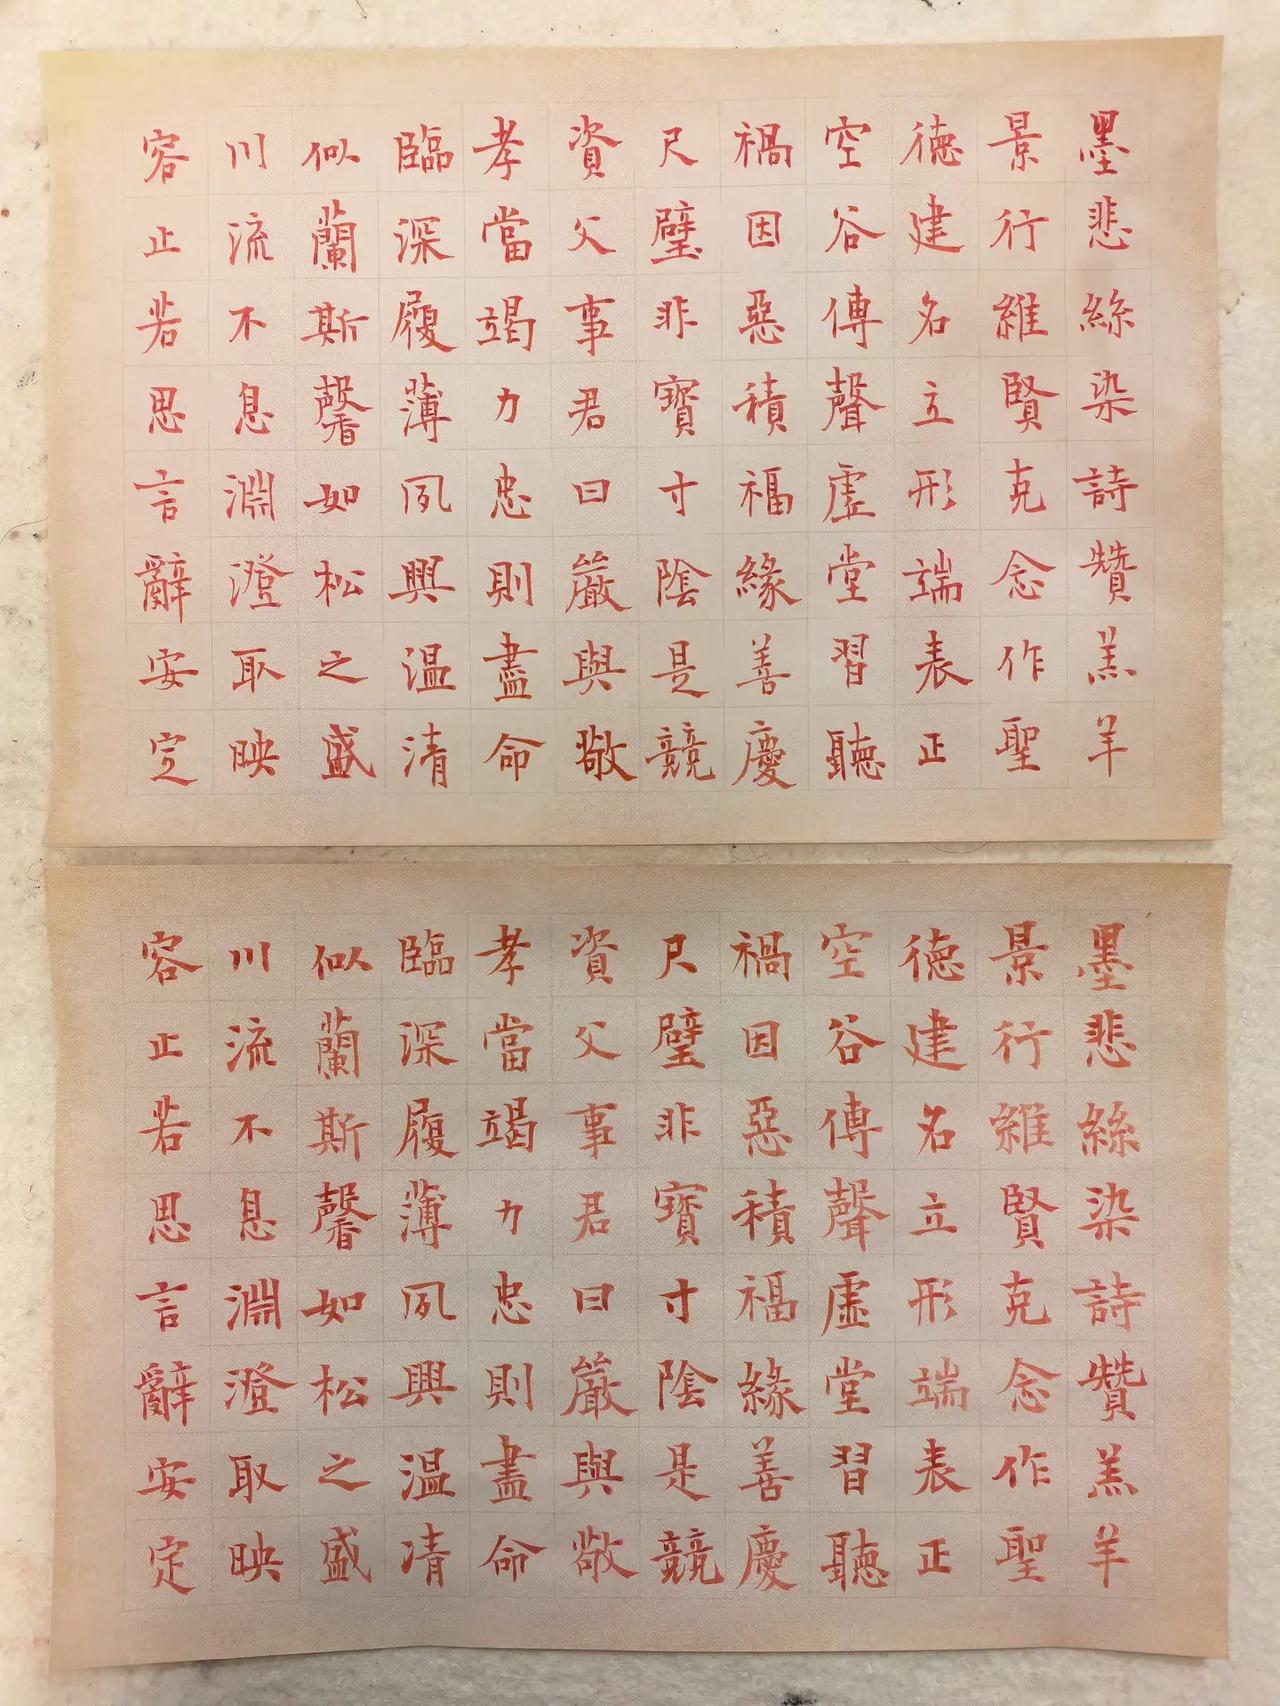 墨悲絲染詩贊羔羊
景行維賢克念作聖
德建名立形端表正
空谷傳聲虛堂習聽
禍因惡積福緣善慶
尺璧非寶寸陰是競
資父事君曰嚴與敬
孝當竭力忠則盡命
臨深履薄夙興温清
似蘭斯馨如松之盛
川流不息淵澄取映
容止若思言辭安定
墨悲絲染詩贊羔羊
景行維賢克念作聖
德建名立形端表正
空谷傳聲虛堂習聽
禍因惡積福緣善慶
尺璧非寶寸陰是競
資父事君曰嚴與敬
孝當竭力忠則盡命
臨深履薄夙興温凊
似蘭斯馨如松之盛
川流不息淵澄取映
容止若思言辭安定